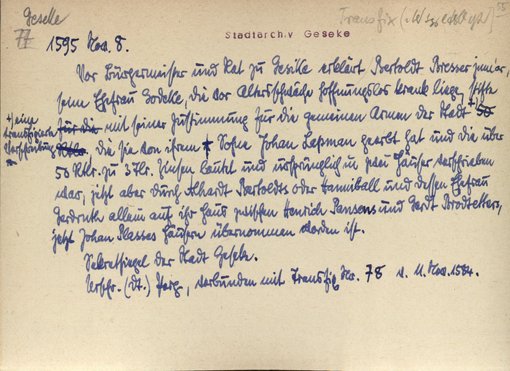 Geseke
77
55
Transfix
Stadtarchiv Geseke
1595 Nov. 8.
Vor Bürgermeister und Rat zu Geseke erklärt Bertoldt Bresser junior,
seine Ehefrau Godeke, die vor Altersschwäche hoffnungslos krank liege, stifte
mit seiner Zustimmung für die gemeinen Armen der Stadt
+) eine
transfigierte
Verschreibung
die sie von ihrem Sohne Johan Lepman geerbt hat und die über
50 Rtlr. zu 3 Tlr. Zinsen lautet und ursprünglich in zwei Häuser verschrieben
war, jetzt aber durch Alhardt Bartoldts oder Hanniball und dessen Ehefrau
Gerdruth allein auf ihr Haus zwischen Henrich Pansens und Gerdt Brodtekers,
jetzt Johan Plasses Häusern übernommen worden ist.
Sekretsiegel der Stadt Geseke.
Urschr. (dt.) Perg., verbunden mit Transfix Nr. 78 v. 11. Nov. 1584.